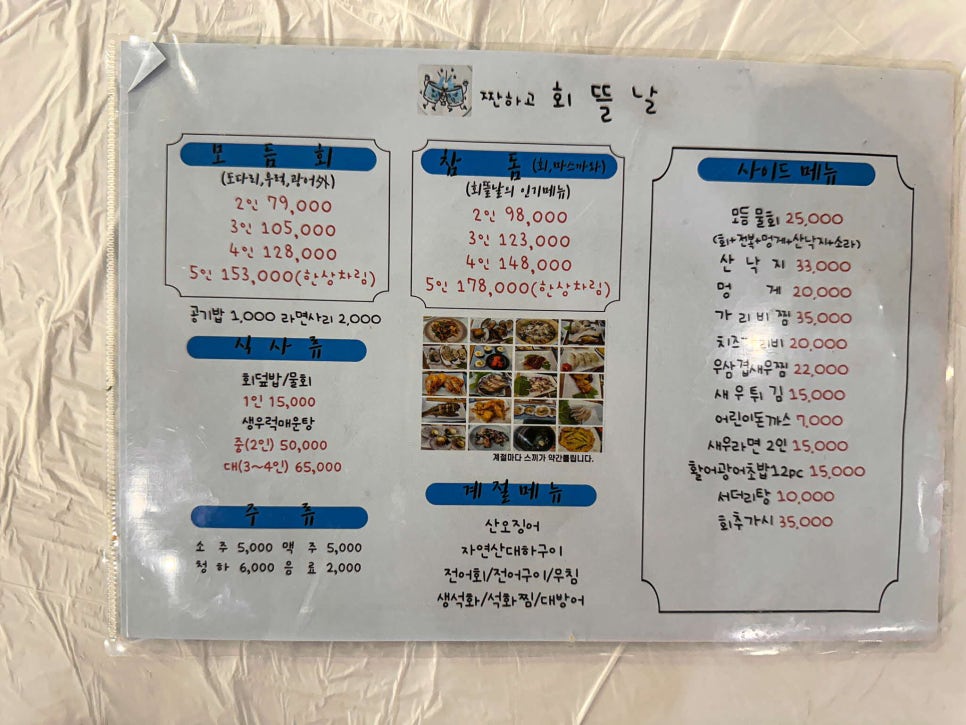 짠하고 회 뜰 날
모 듬 회
(도다리,우럭,광어外)
2인 79,000
3인 105,000
4인 128,000
5인 153,000(한상차림)
공기밥 1,000 라면사리 2,000
식 사 류
회덮밥/물회
1인 15,000
생우럭매운탕
중(2인) 50,000
대(3~4인) 65,000
주 류
소 주 5,000 맥 주 5,000
청 하 6,000 음 료 2,000
참 돔 (회,마스까와)
(회뜰날의 인기메뉴)
2인 98,000
3인 123,000
4인 148,000
5인 178,000(한상차림)
계절마다 스끼가 약간틀립니다.
계 절 메 뉴
산오징어
자연산대하구이
전어회/전어구이/무침
생석화/석화찜/대방어
사이드 메뉴
모듬 물회 25,000
(회+전복+멍게+산낙지+소라)
산 낙 지 33,000
멍 게 20,000
가 리 비 찜 35,000
치즈가리비 20,000
우삼겹새우찜 22,000
새 우 튀 김 15,000
어린이돈까스 7,000
새우라면 2인 15,000
활어광어초밥12pc 15,000
서더리탕 10,000
회추가시 35,000